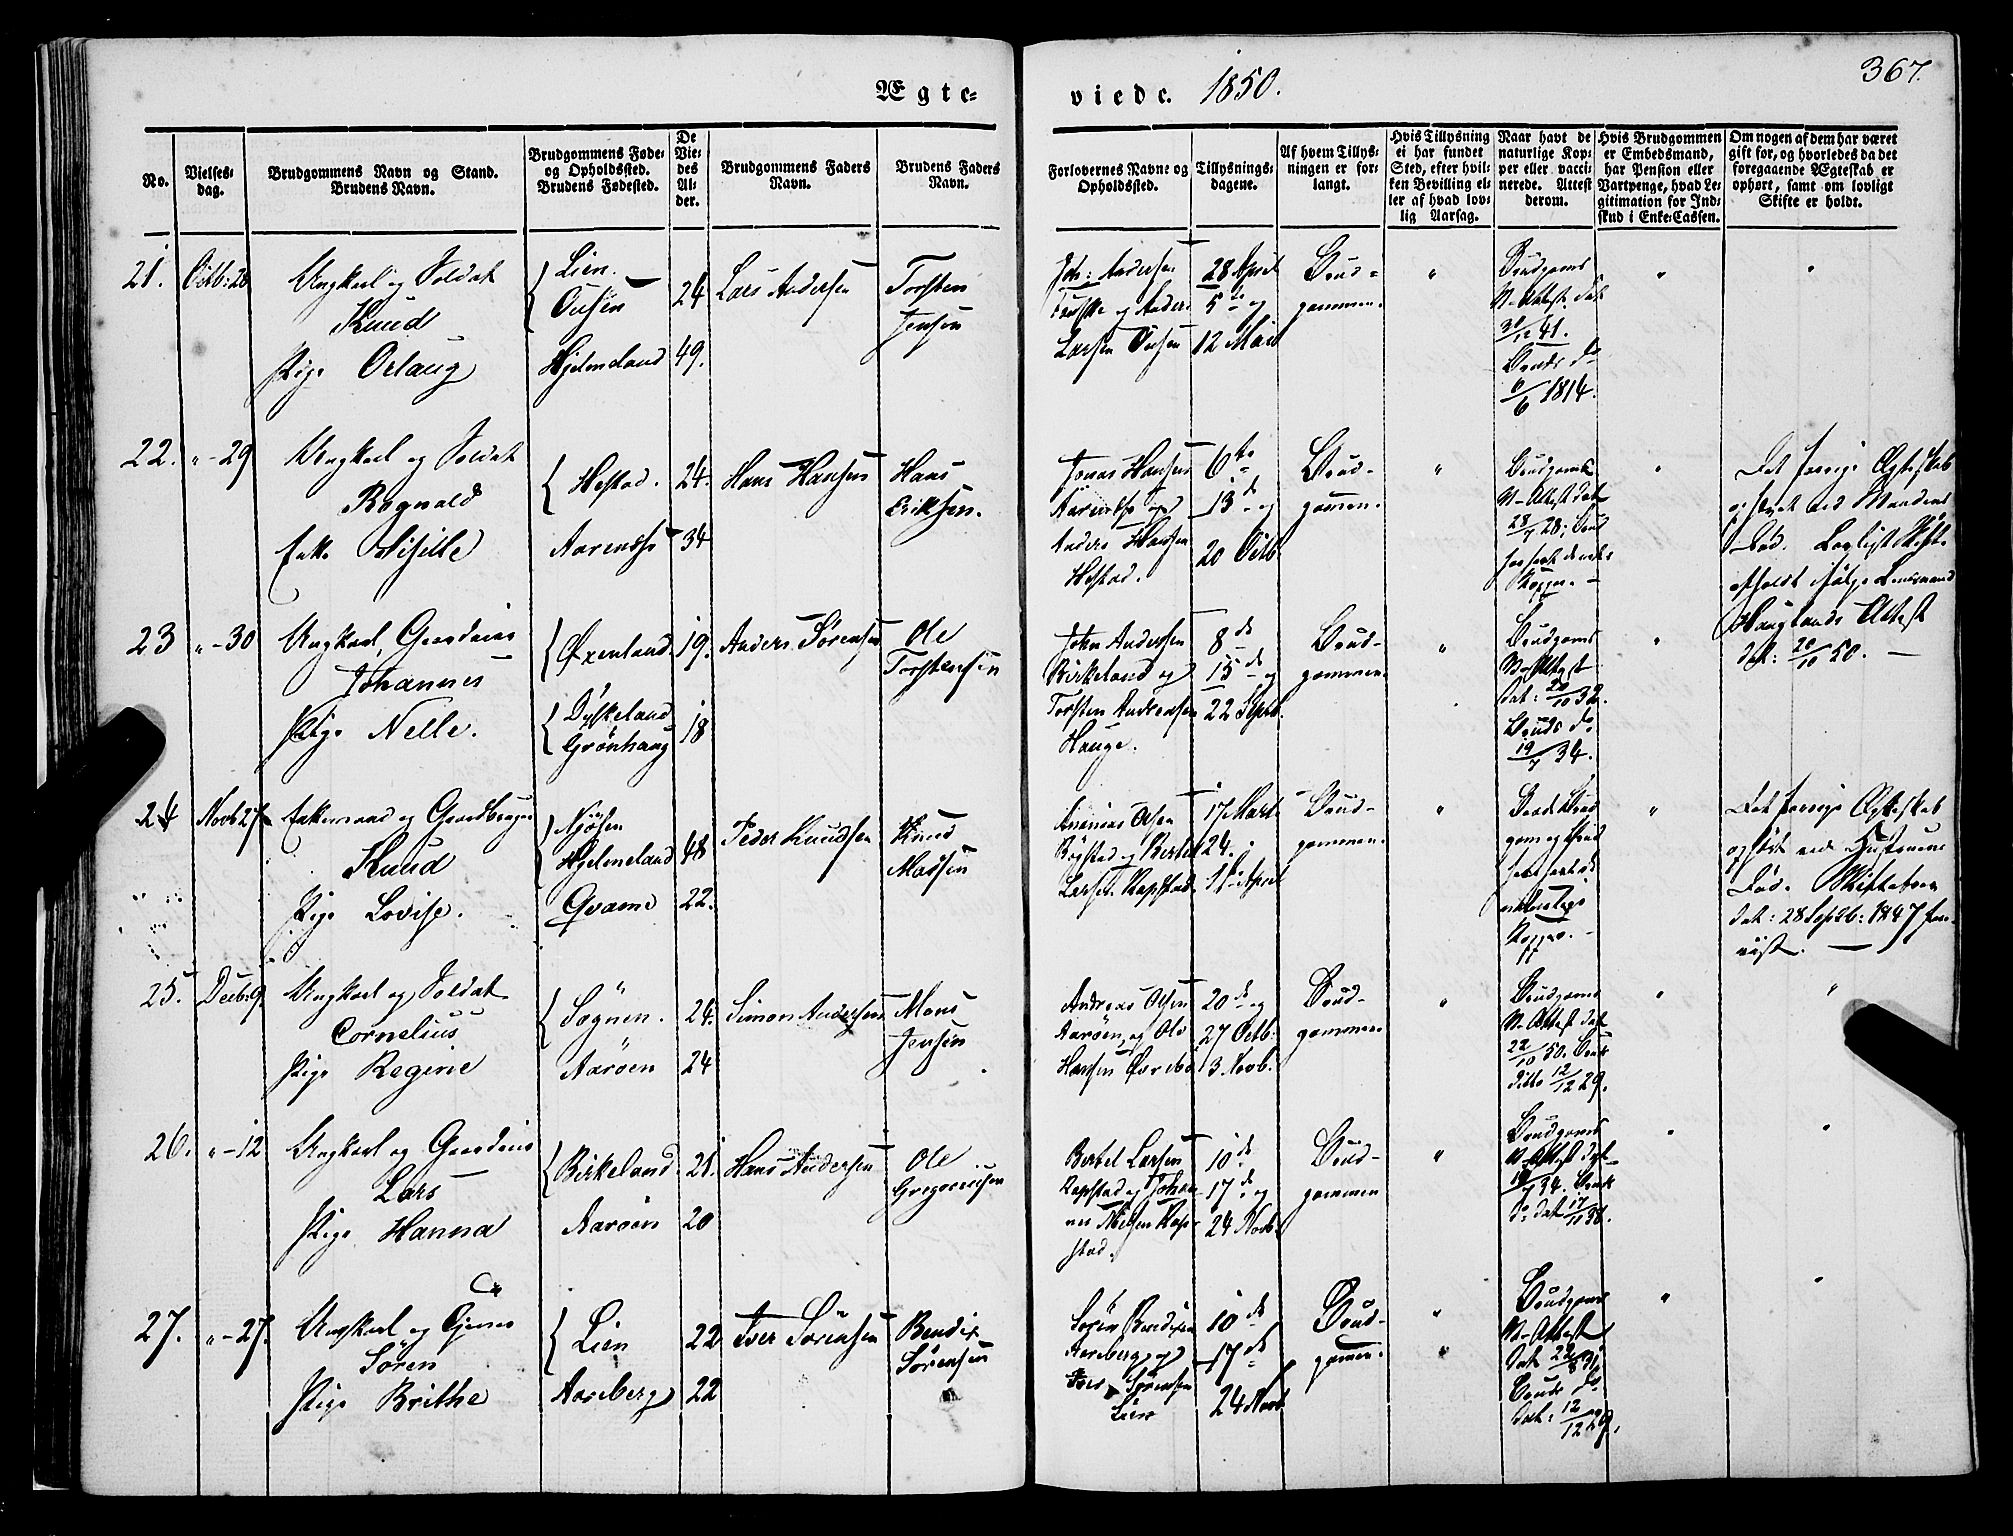 Ægte-
viede. 1850.
367.
No.
Vielses-
dag.
Brudgommens Navn og Stand.
Brudens Navn.
Brudgommens Føde-
og Opholdssted.
Brudens Fødested.
De
Vie-
des
Al-
der.
Brudgommens Faders
Navn.
Brudens Faders
Navn.
Forlovernes Navne og
Opholdssted.
Tillysnings-
dagene.
Af hvem Tillys-
ningen er for-
langt.
Hvis Tillysning
ei har fundet
Sted, efter hvil-
ken Bevilling el-
ler af hvad lov-
lig Aarsag.
Naar havt de
naturlige Kop-
per eller vacci-
nerede. Attest
derom.
Hvis Brudgommen
er Embedsmand,
har Pension eller
Vartpenge, hvad Le-
gitimation for Ind-
skud i Enke-Cassen.
Om nogen af dem har været
gift før, og hvorledes da det
foregaaende Ægteskab er
ophørt, samt om lovligt
Skifte er holdt.
21. Octb: 28
Ungkarl og Soldat
Knud
Pige Orlaug
Lien.
Hjelmeland
24
49.
Lars Andersen
Torsten
Jensen
Joh: Andersen
og Anders
Larsen
28 April
5 og
12 Mai
Brud-
gommen.
"
Brudgoms
V-Attest dat
30/12 41.
Bruds do
6/6 1814.
"
"
22. " - 29
Ungkarl og Soldat
Rognald
Enke
Hestad.
24.
34
Hans Hansen
Hans
Eriksen.
Jonas Hansen
og
Anders Hansen
Hestad.
6te
13de og
20 Octb
Brud-
gommen.
"
Brudgoms
V-Attest dat
28/7 28; Brud
Kopper. -
"
Det forrige Ægteskab
ophævet ved Mandens
Død. Lovligt Skifte
afholdt ifølge Lensmand
Hauglands Attest
dat: 20/10 50. -
23 " - 30
Ungkarl, Gaardeier
Johannes
Pige Nelle.
Øxenland
Dyskeland
Grønhaug
19.
18
Anders Sørensen
Ole
Torstensen
John Andersen
Birkeland og
Torsten Andersen
Hauge.
8de
15de og
22 Septb.
Brud-
gommen.
"
Brudgoms
V-Attest
dat: 20/10 32.
Bruds do
19/7 34.
"
24 Novb 27
Enkemand og Gaardbruger
Knud
Pige Lovise.
Njøsen
Hjelmeland
Qvame
48
22.
Peder Knudsen
Knud
Madsen
Ananias Olsen
Bøgstad og Bertel
Larsen Kapstad
17 Marts
24.
1ste April
Brud-
gommen.
"
Baade Brud
gom og Brud
have havt de
naturlige
Kopper. -
"
Det forrige Ægteskab
ophørt ved Hustruens
Død. Skiftebrev
dat: 28 Septb: 1847 fore-
vist. -
25. Decb: 9
Ungkarl og Soldat
Cornelius
Pige Regine
Sognen.
Aarøen
24.
24
Simon Andersen
Mons
Jensen
Andreas Olsen
Aarøen, og Ole
Hansen
20de og
27 Octb:
3 Novb.
Brud-
gommen.
"
Brudgoms
V-Attest dat
22/10 50. Bruds
ditto 12/12 29.
"
"
26. " - 12
Ungkarl og Gaardeier
Lars
Pige Hanna
Birkeland
Aarøen
21.
20
Hans Andersen
Ole
Gregoriusen
Bertel Larsen
Kapstad og Johan-
nes Nielsen Kap-
stad.
10de
17de og
24 Novb.
Brud-
gommen
"
Brudgoms
V-Attest dat
34. Bruds
do dat 17/11 38.
"
"
27. " - 27.
Ungkarl og
Søren
Pige Brithe
Lien
Aareberg
22
22
Iver Sørensen
Bendix
Sørensen
Søren Bendixen
Aareberg og
Iver Sørensen
Lien
10de
17de
24 Novb
Brud-
gomen.
"
"
Brudgoms
V-Attest
dat 22/8 31.
Bruds do
dat: 12/12 29.
"
"